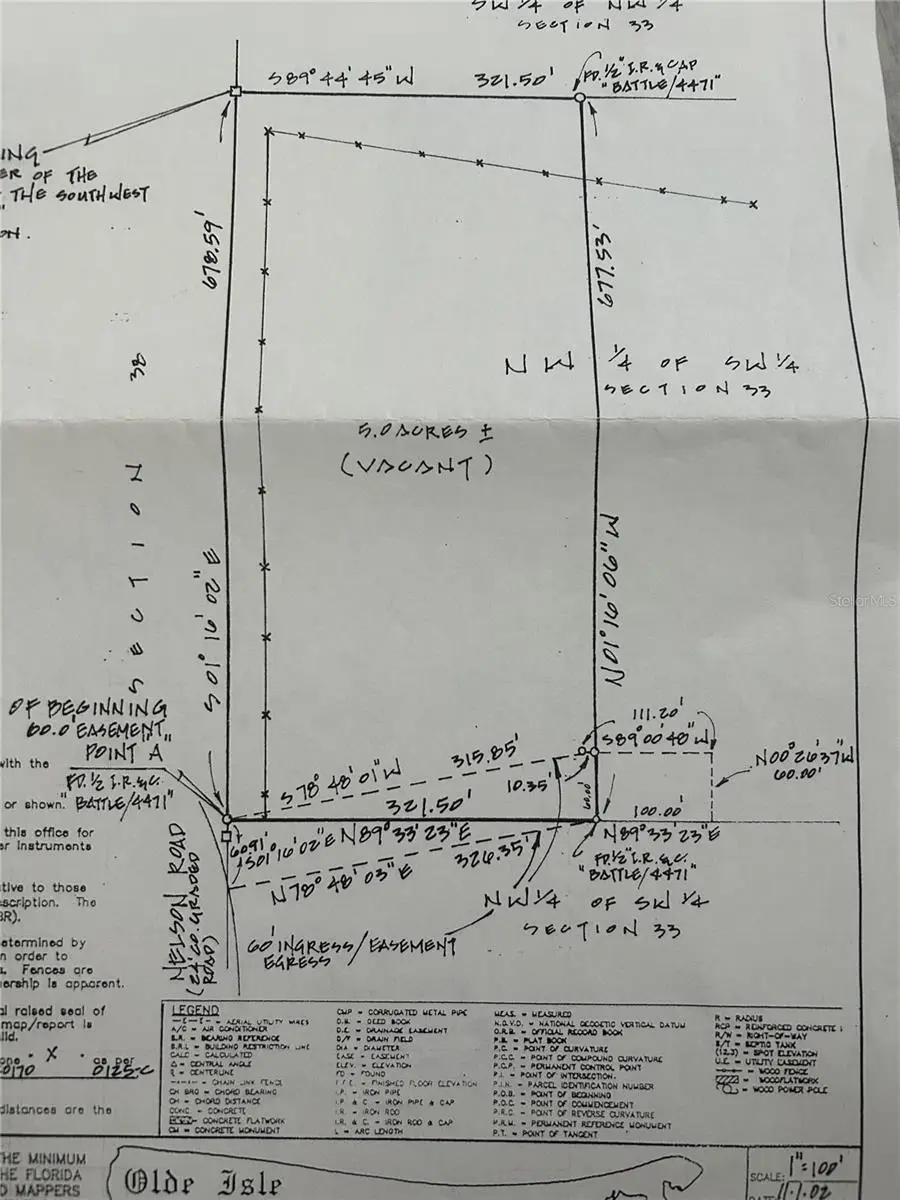 SW 1/4 OF NW 1/4
SECTION 33
S89° 44' 45" W
321.50'
FD. 1/2" I.R. & CAP
"BATTLE/4471"
ING
ER OF THE
THE SOUTHWEST
ON.
678.59'
677.53'
NW 1/4 OF SW 1/4
SECTION 33
5.0 ACRES ±
(VACANT)
SECTION
S 01° 16' 02" E
N01° 16' 06" W
StellarMLS
OF BEGINNING
60.0' EASEMENT,
"POINT A"
FD. 1/2 I.R. & C.
"BATTLE/4471"
111.20'
S89° 00' 48" W
N00° 26' 37" W
60.00'
S78° 48' 01" W
315.85'
10.35'
60.00
321.50'
100.00'
N89° 33' 23" E
N89° 33' 23" E
S01° 16' 02" E
N78° 48' 03" E
326.35'
FD. 1/2" I.R. & C.
"BATTLE/4471"
NELSON ROAD
(24' CO. GRADED
ROAD)
NW 1/4 OF SW 1/4
SECTION 33
60' INGRESS/EASEMENT
EGRESS
with the
or shown.
this office for
er instruments
ative to those
escription. The
BR).
etermined by
n order to
s. Fences are
nership is apparent.
al raised seal of
map/report is
lid.
one X as per
0170 0125-C
distances are the
LEGEND
-E-E- = AERIAL UTILITY WIRES
A/C = AIR CONDITIONER
B.R. = BEARING REFERENCE
B.R.L = BUILDING RESTRICTION LINE
CALC = CALCULATED
Δ = CENTRAL ANGLE
= CENTERLINE
= CHAIN LINK FENCE
CH BRG = CHORD BEARING
CH = CHORD DISTANCE
CONC. = CONCRETE
= CONCRETE FLATWORK
CM = CONCRETE MONUMENT
CMP = CORRUGATED METAL PIPE
D.B. = DEED BOOK
D.E. = DRAINAGE EASEMENT
D/F = DRAIN FIELD
DIA = DIAMETER
EASE = EASEMENT
ELEV. = ELEVATION
FD = FOUND
F.F.E. = FINISHED FLOOR ELEVATION
I.P. = IRON PIPE
I.P. & C. = IRON PIPE & CAP
I.R. = IRON ROD
I.R. & C. = IRON ROD & CAP
L = ARC LENGTH
MEAS. = MEASURED
N.G.V.D. = NATIONAL GEODETIC VERTICAL DATUM
O.R.B. = OFFICIAL RECORD BOOK
P.B. = PLAT BOOK
P.C. = POINT OF CURVATURE
P.C.C. = POINT OF COMPOUND CURVATURE
P.C.P. = PERMANENT CONTROL POINT
P.I. = POINT OF INTERSECTION
P.I.N. = PARCEL IDENTIFICATION NUMBER
P.O.B. = POINT OF BEGINNING
P.O.C. = POINT OF COMMENCEMENT
P.R.C. = POINT OF REVERSE CURVATURE
P.R.M. = PERMANENT REFERENCE MONUMENT
P.T. = POINT OF TANGENT
R = RADIUS
RCP = REINFORCED CONCRETE
R/W = RIGHT-OF-WAY
S/T = SEPTIC TANK
(12.3) = SPOT ELEVATION
U.E. = UTILITY EASEMENT
= WOOD FENCE
= WOODFLATWORK
= WOOD POWER POLE
THE MINIMUM
THE FLORIDA
D MAPPERS
Olde Isle
SCALE: 1"=100'
DATE: 11.1.02